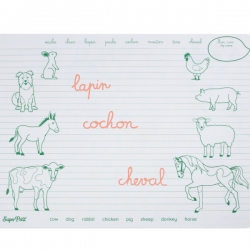 vache chien lapin poule cochon mouton âne cheval
lapin
cochon
cheval
Super Petit cow dog rabbit chicken pig sheep donkey horse